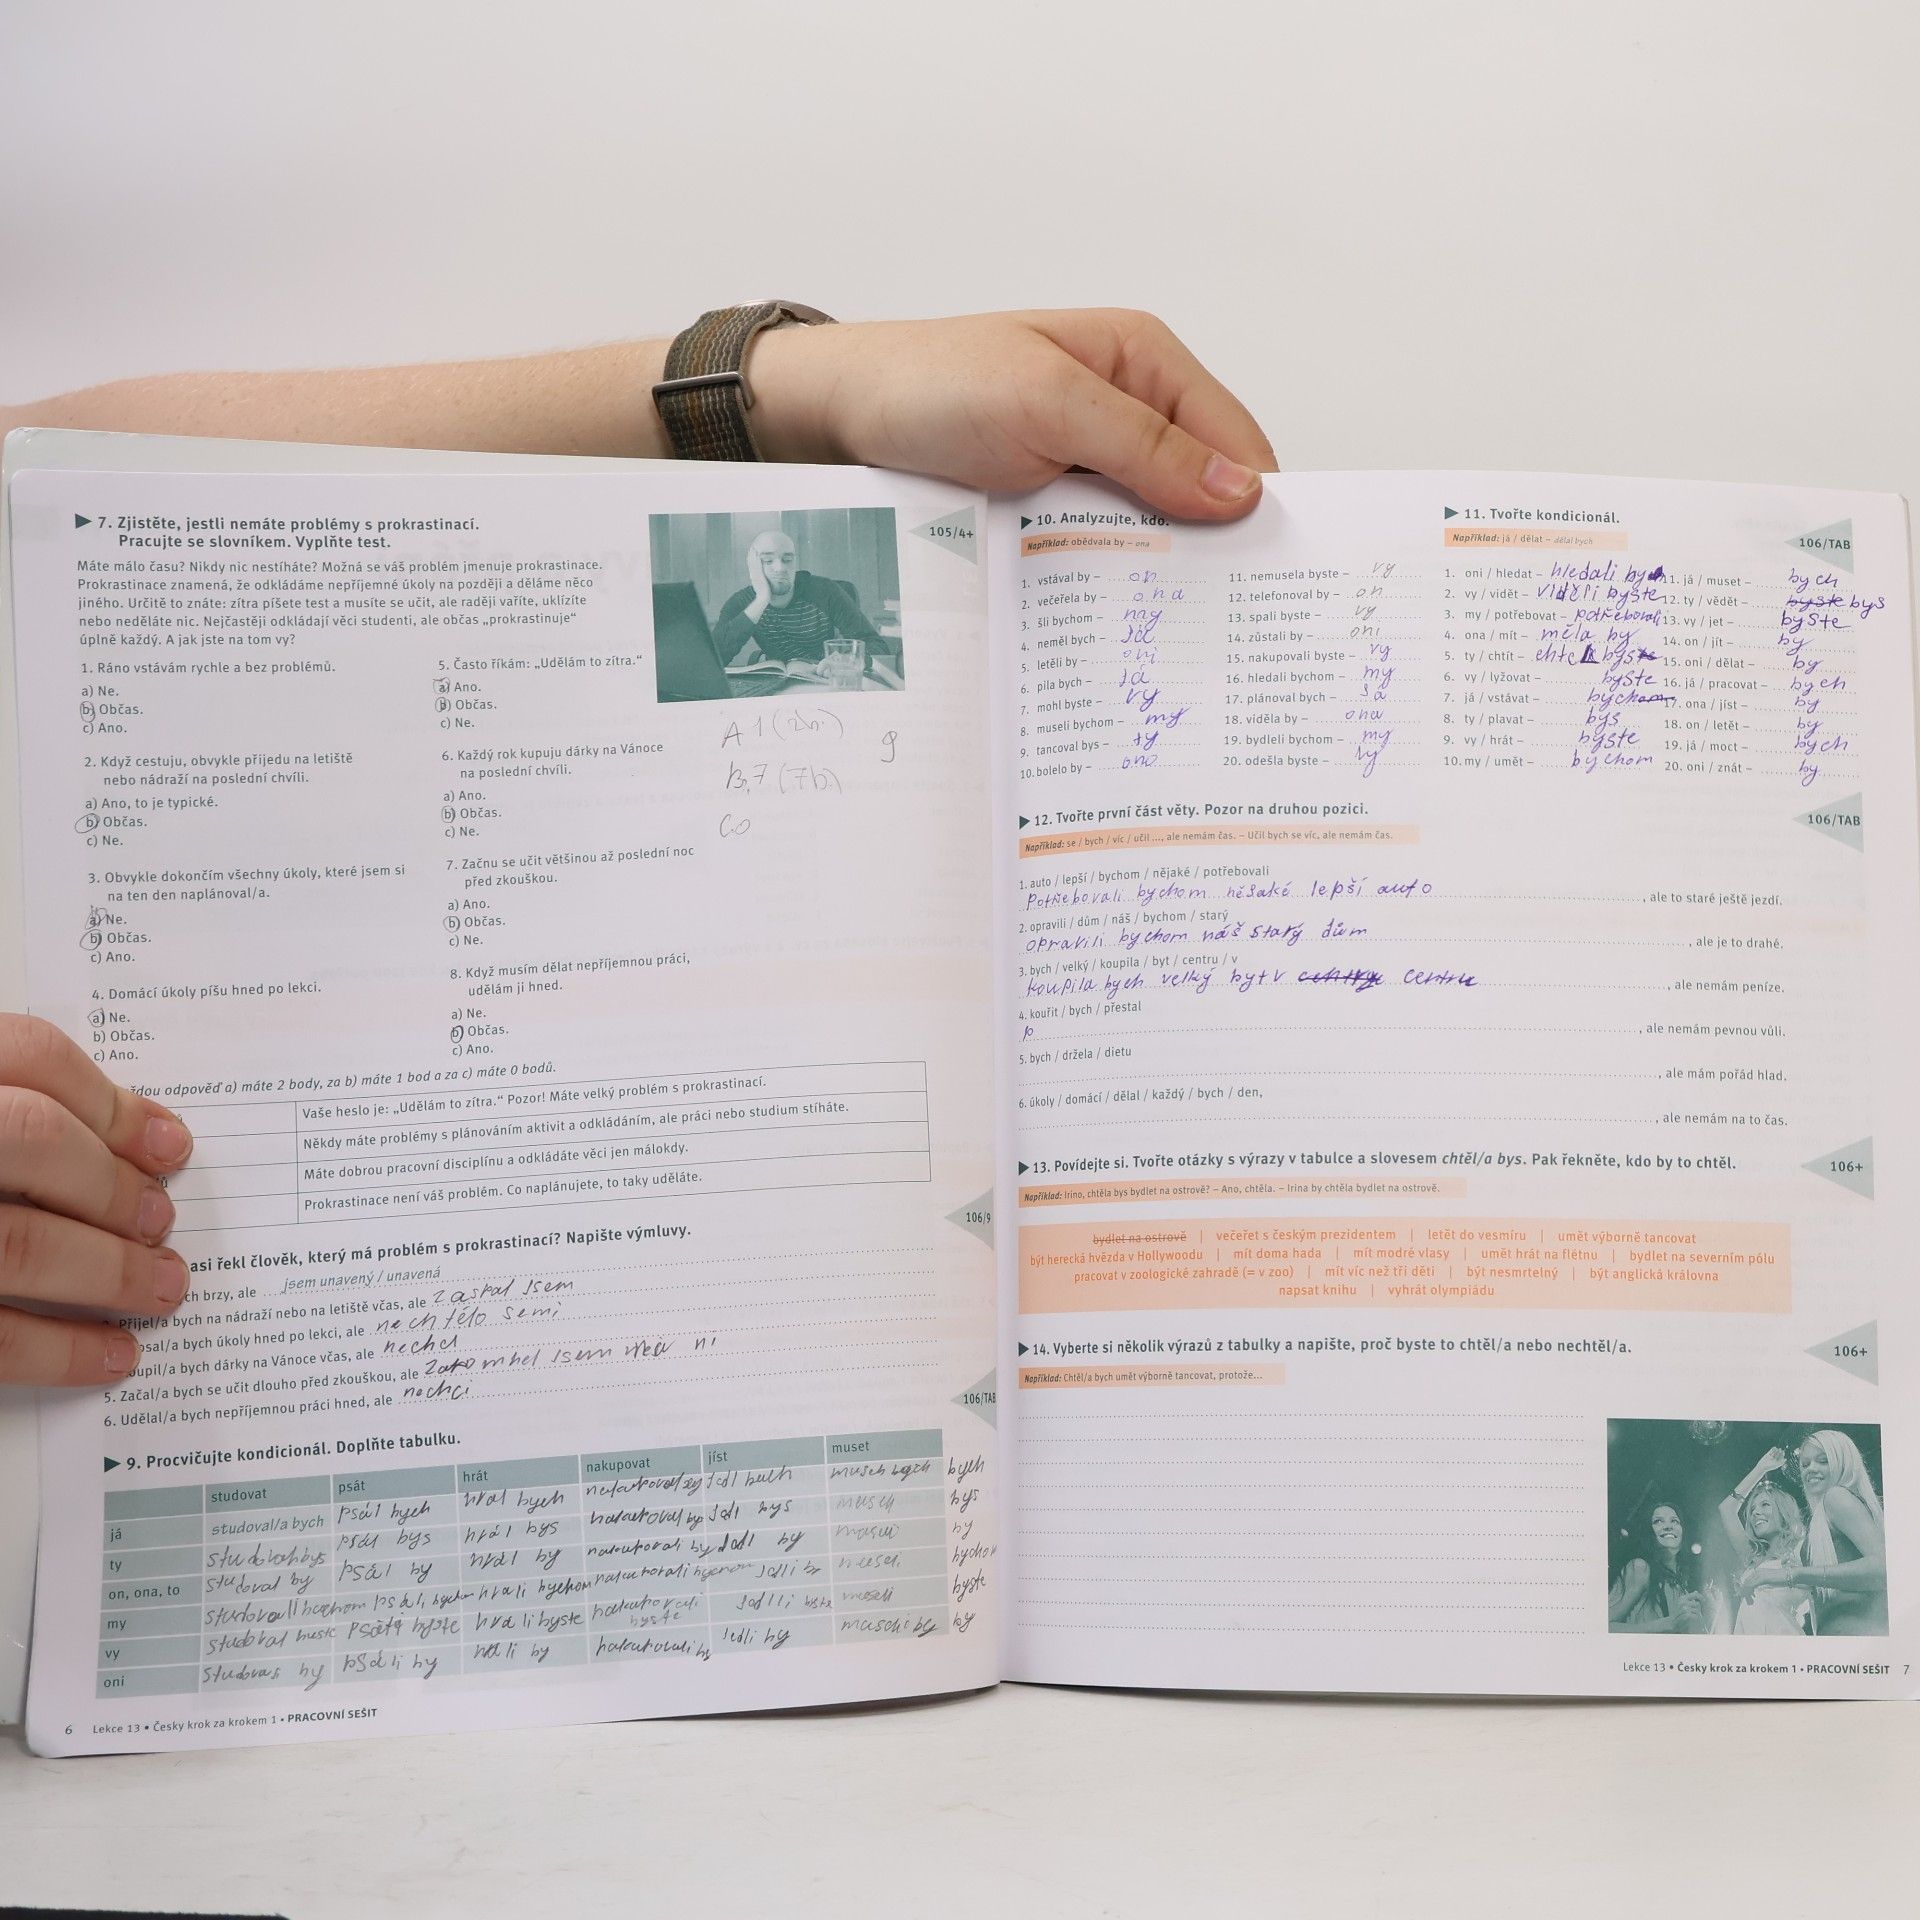 7. Zjistěte, jestli nemáte problémy s prokrastinací.
Pracujte se slovníkem. Vyplňte test.
105/4+
Máte málo času? Nikdy nic nestíháte? Možná se váš problém jmenuje prokrastinace.
Prokrastinace znamená, že odkládáme nepříjemné úkoly na později a děláme něco
jiného. Určitě to znáte: zítra píšete test a musíte se učit, ale raději vaříte, uklízíte
nebo neděláte nic. Nejčastěji odkládají věci studenti, ale občas „prokrastinuje“
úplně každý. A jak jste na tom vy?
1. Ráno vstávám rychle a bez problémů.
a) Ne.
b) Občas.
c) Ano.
2. Když cestuju, obvykle přijedu na letiště
nebo nádraží na poslední chvíli.
a) Ano, to je typické.
b) Občas.
c) Ne.
3. Obvykle dokončím všechny úkoly, které jsem si
na ten den naplánoval/a.
a) Ne.
b) Občas.
c) Ano.
4. Domácí úkoly píšu hned po lekci.
a) Ne.
b) Občas.
c) Ano.
5. Často říkám: „Udělám to zítra.“
a) Ano.
b) Občas.
c) Ne.
6. Každý rok kupuju dárky na Vánoce
na poslední chvíli.
a) Ano.
b) Občas.
c) Ne.
7. Začnu se učit většinou až poslední noc
před zkouškou.
a) Ano.
b) Občas.
c) Ne.
8. Když musím dělat nepříjemnou práci,
udělám ji hned.
a) Ne.
b) Občas.
c) Ano.
A 1
B,7 (7b.)
9
C0
odpověď a) máte 2 body, za b) máte 1 bod a za c) máte 0 bodů.
Vaše heslo je: „Udělám to zítra.“ Pozor! Máte velký problém s prokrastinací.
Někdy máte problémy s plánováním aktivit a odkládáním, ale práci nebo studium stíháte.
Máte dobrou pracovní disciplínu a odkládáte věci jen málokdy.
Prokrastinace není váš problém. Co naplánujete, to taky uděláte.
106/9
asi řekl člověk, který má problém s prokrastinací? Napište výmluvy.
ch brzy, ale jsem unavený / unavená
Přijel/a bych na nádraží nebo na letiště včas, ale zaspal jsem
psal/a bych úkoly hned po lekci, ale nechtělo semi
oupil/a bych dárky na Vánoce včas, ale nechci
5. Začal/a bych se učit dlouho před zkouškou, ale jsem
6. Udělal/a bych nepříjemnou práci hned, ale nechci
106/TAB
9. Procvičujte kondicionál. Doplňte tabulku.
studovat psát hrát nakupovat jíst muset
já studoval/a bych psál bych hrál bych bych
ty psál bys hrál bys bys
on, ona, to studoval by psál by hrál by by
my hráli bychom
vy hráli byste byste
oni by psáli by hráli by nakupovali by jedli by by
6 Lekce 13 • Česky krok za krokem 1 • PRACOVNÍ SEŠIT
10. Analyzujte, kdo.
Například: obědvala by – ona
1. vstával by – on
2. večeřela by – ona
3. šli bychom – my
4. neměl bych – Já
5. letěli by – oni
6. pila bych – já
7. mohl byste – vy
8. museli bychom – my
9. tancoval bys – ty
10. bolelo by – ono
11. nemusela byste – vy
12. telefonoval by – on
13. spali byste – vy
14. zůstali by – oni
15. nakupovali byste – vy
16. hledali bychom – my
17. plánoval bych – Já
18. viděla by – ona
19. bydleli bychom – my
20. odešla byste – vy
11. Tvořte kondicionál.
106/TAB
Například: já / dělat – dělal bych
1. oni / hledat – hledali by
2. vy / vidět – viděli byste
3. my / potřebovat – potřebovali
4. ona / mít – měla by
5. ty / chtít – chtěl bys
6. vy / lyžovat – byste
7. já / vstávat – bych
8. ty / plavat – bys
9. vy / hrát – byste
10. my / umět – bychom
11. já / muset – bych
12. ty / vědět – byste bys
13. vy / jet – byste
14. on / jít – by
15. oni / dělat – by
16. já / pracovat – bych
17. ona / jíst – by
18. on / letět – by
19. já / moct – bych
20. oni / znát – by
12. Tvořte první část věty. Pozor na druhou pozici.
106/TAB
Například: se / bych / víc / učil ..., ale nemám čas. – Učil bych se víc, ale nemám čas.
1. auto / lepší / bychom / nějaké / potřebovali
Potřebovali bychom nějaké lepší auto , ale to staré ještě jezdí.
2. opravili / dům / náš / bychom / starý
opravili bychom náš starý dům , ale je to drahé.
3. bych / velký / koupila / byt / centru / v
koupila bych velký byt v centru , ale nemám peníze.
4. kouřit / bych / přestal
p , ale nemám pevnou vůli.
5. bych / držela / dietu
, ale mám pořád hlad.
6. úkoly / domácí / dělal / každý / bych / den,
, ale nemám na to čas.
13. Povídejte si. Tvořte otázky s výrazy v tabulce a slovesem chtěl/a bys. Pak řekněte, kdo by to chtěl.
106+
Například: Irino, chtěla bys bydlet na ostrově? – Ano, chtěla. – Irina by chtěla bydlet na ostrově.
bydlet na ostrově | večeřet s českým prezidentem | letět do vesmíru | umět výborně tancovat
být herecká hvězda v Hollywoodu | mít doma hada | mít modré vlasy | umět hrát na flétnu | bydlet na severním pólu
pracovat v zoologické zahradě (= v zoo) | mít víc než tři děti | být nesmrtelný | být anglická královna
napsat knihu | vyhrát olympiádu
14. Vyberte si několik výrazů z tabulky a napište, proč byste to chtěl/a nebo nechtěl/a.
106+
Například: Chtěl/a bych umět výborně tancovat, protože...
Lekce 13 • Česky krok za krokem 1 • PRACOVNÍ SEŠIT 7